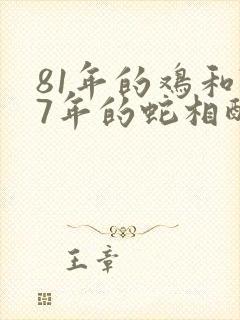 81年的鸡和
7年的蛇相
王章